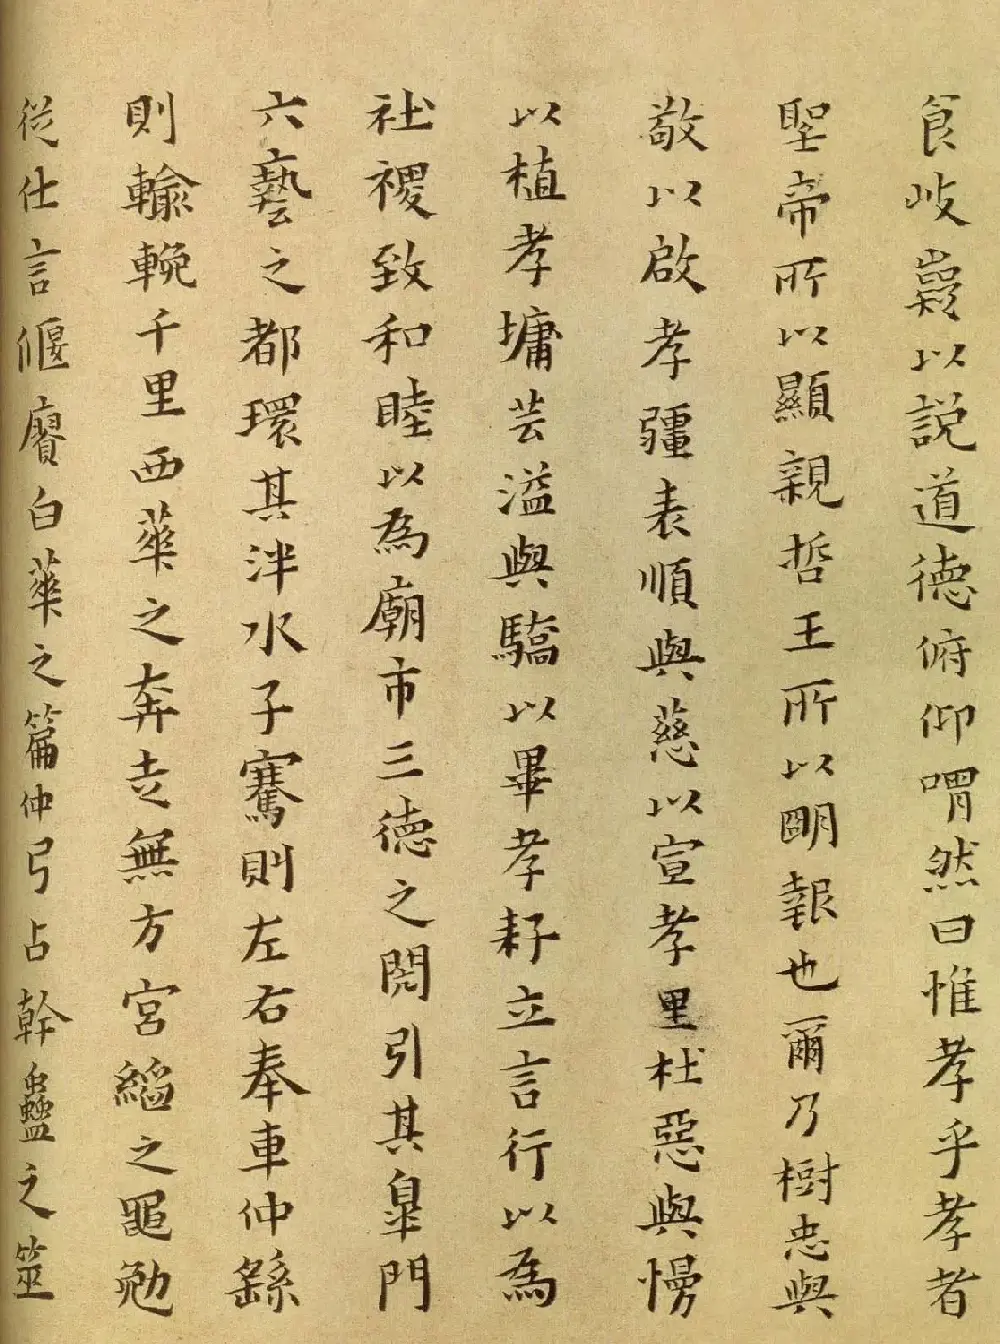 食岐嶷以説道德俯仰喟然曰惟孝乎孝者
聖帝所以顯親哲王所以朙報也爾乃樹忠與
敬以啟孝疆表順與慈以宣孝里杜惡與慢
以植孝墉芸溢與驕以畢孝耔立言行以為
社稷致和睦以為廟市三德之閎引其皐門
六藝之都環其泮水子騫則左右奉車仲繇
則輸輓千里西華之奔走無方宮縚之黽勉
從仕言偃賡白華之篇仲弓占幹蠱之筮